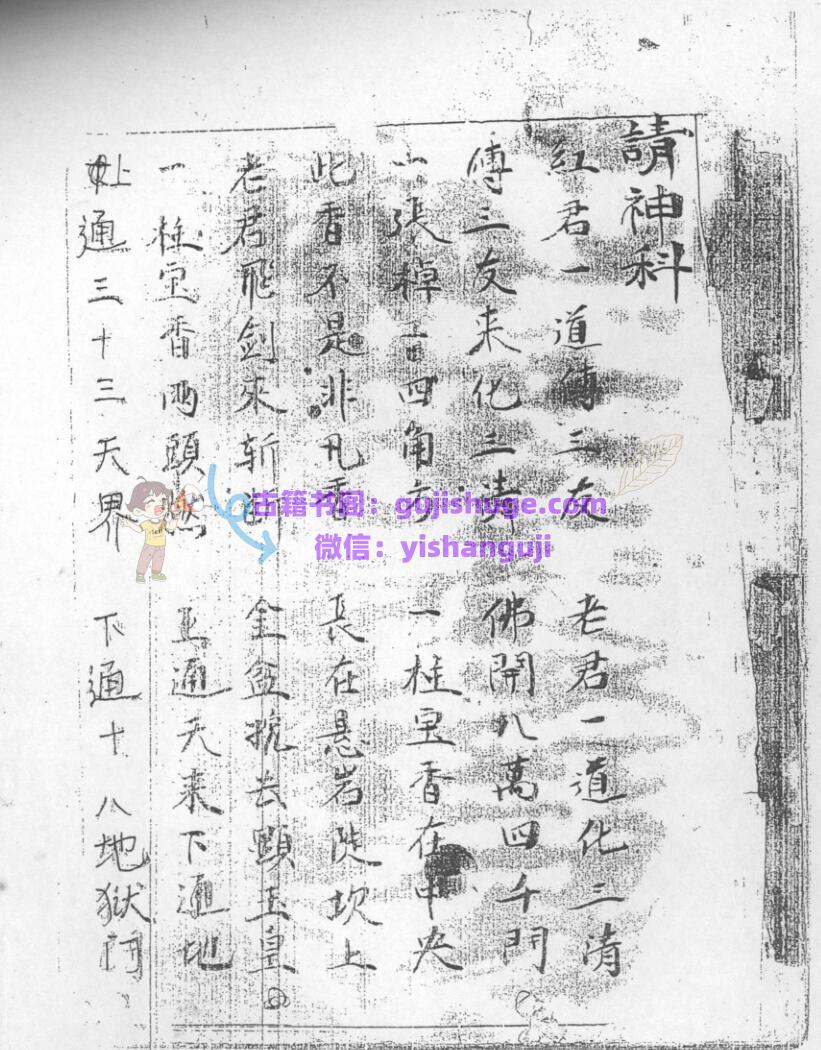 請神科
紅君一道傳三友 老君一道化三清
傳三友来化三清 佛開八萬四千門
一張棹子四角方 一柱宝香在中央
此香不是非凡香 長在悬岩陡坎上
老君飛剑来斩断 金盆抗去顕玉皇
一柱宝香両頭 上通天来下通地
上通三十三天界 下通十八地獄門
古籍书阁：gujishuge.com
微信：yishanguji